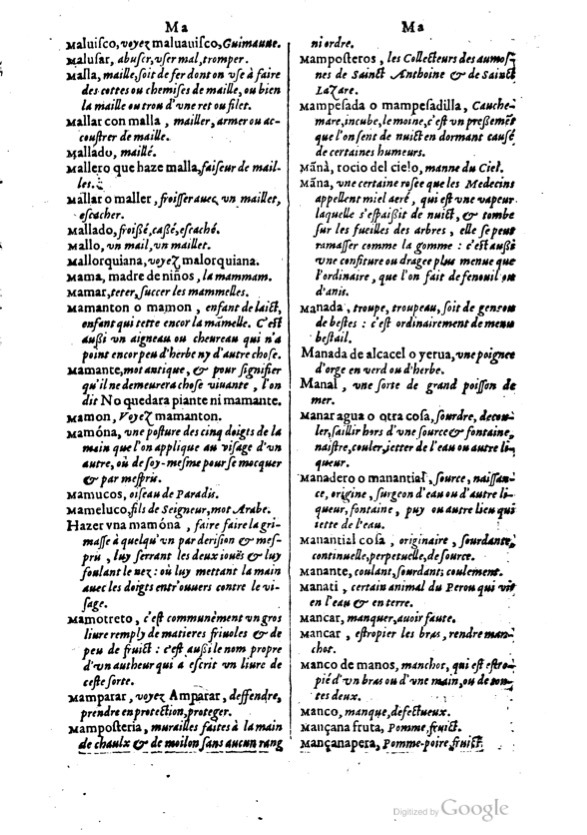 Ma
Maluisco, voyez maluauisco, Guimauue.
Malusar, abuser, vser mal, tromper.
Malla, maille, soit de fer dont on vse à faire
des cottes ou chemises de maille, ou bien
la maille ou trou d'vne ret ou filet.
Mallar con malla, mailler, armer ou ac-
coustrer de maille.
Mallado, maillé.
Mallero que haze malla, faiseur de mail-
les.
Mallar o maller, froisser auec vn maillet,
escacher.
Mallado, froißé, caßé, escaché.
Mallo, vn mail, vn maillet.
Mallorquiana, voyez malorquiana.
Mama, madre de niños, la mammam.
Mamar, teter, succer les mammelles.
Mamanton o mamon, enfant de laict,
enfant qui tette encor la māmelle. C'est
außi vn aigneau ou cheureau qui n'a
point encor peu d'herbe ny d'autre chose.
Mamante, mot antique, & pour signifier
qu'il ne demeurera chose viuante, l'on
dit No quedara piante ni mamante.
Mamon, Voyez mamanton.
Mamóna, vne posture des cinq doigts de la
main que l'on applique au visage d'vn
autre, où de soy-mesme pour se mocquer
& par mespris.
Mamucos, oiseau de Paradis.
Mameluco, fils de Seigneur, mot Arabe.
Hazer vna mamóna, faire faire la gri-
masse à quelqu'vn par derision & mes-
pris, luy serrant les deux iouës & luy
foulant le nez: où luy mettant la main
auec les doigts entr'ouuers contre le vi-
sage.
Mamotreto, c'est communèment vn gros
liure remply de matieres friuoles & de
peu de fruict: c'est außi le nom propre
d'vn autheur qui a escrit vn liure de
ceste sorte.
Mamparar, voyez Amparar, deffendre,
prendre en protection, proteger.
Mamposteria, murailles faites à la main
de chaulx & de moilon sans aucun rang
Ma
ni ordre.
Mamposteros, les Collecteurs des aumos-
nes de Sainct Anthoine & de Sainct
Lazare.
Mampesada o mampesadilla, Cauche-
mare, incube, le moine, c'est vn preßemēt
que l'on sent de nuict en dormant causé
de certaines humeurs.
Māná, rocio del cielo, manne du Ciel.
Māna, vne certaine rosee que les Medecins
appellent miel aeré, qui est vne vapeur
laquelle s'espaißit de nuict, & tombe
sur les fueilles des arbres, elle se peut
ramasser comme la gomme: c'est außi
vne confiture ou dragee plus menue que
l'ordinaire, que l'on fait de fenouil ou
d'anis.
Manada, troupe, troupeau, soit de gens ou
de bestes: c'est ordinairement de menu
bestail.
Manada de alcacel o yerua, vne poignee
d'orge en verd ou d'herbe.
Manal, vne sorte de grand poisson de
mer.
Manar agua o otra cosa, sourdre, decou-
ler, saillir hors d'vne source & fontaine,
naistre, couler, jetter de l'eau ou autre li-
queur.
Manadero o manantial, source, naissan-
ce, origine, surgeon d'eau ou d'autre li-
queur, fontaine, puy ou autre lieu qui
iette de l'eau.
Manantial cosa, originaire, sourdante,
continuelle, perpetuelle, de source.
Manante, coulant, sourdant, coulement.
Manati, certain animal du Perou qui vit
en l'eau & en terre.
Mancar, manquer, auoir faute.
Mancar, estropier les bras, rendre man-
chot.
Manco de manos, manchot, qui est estro-
pié d'vn bras ou d'vne main, ou de tou-
tes deux.
Manco, manque, defectueux.
Mançana fruta, Pomme, fruict.
Mançanapera, Pomme-poire, fruict.
Digitized by Google